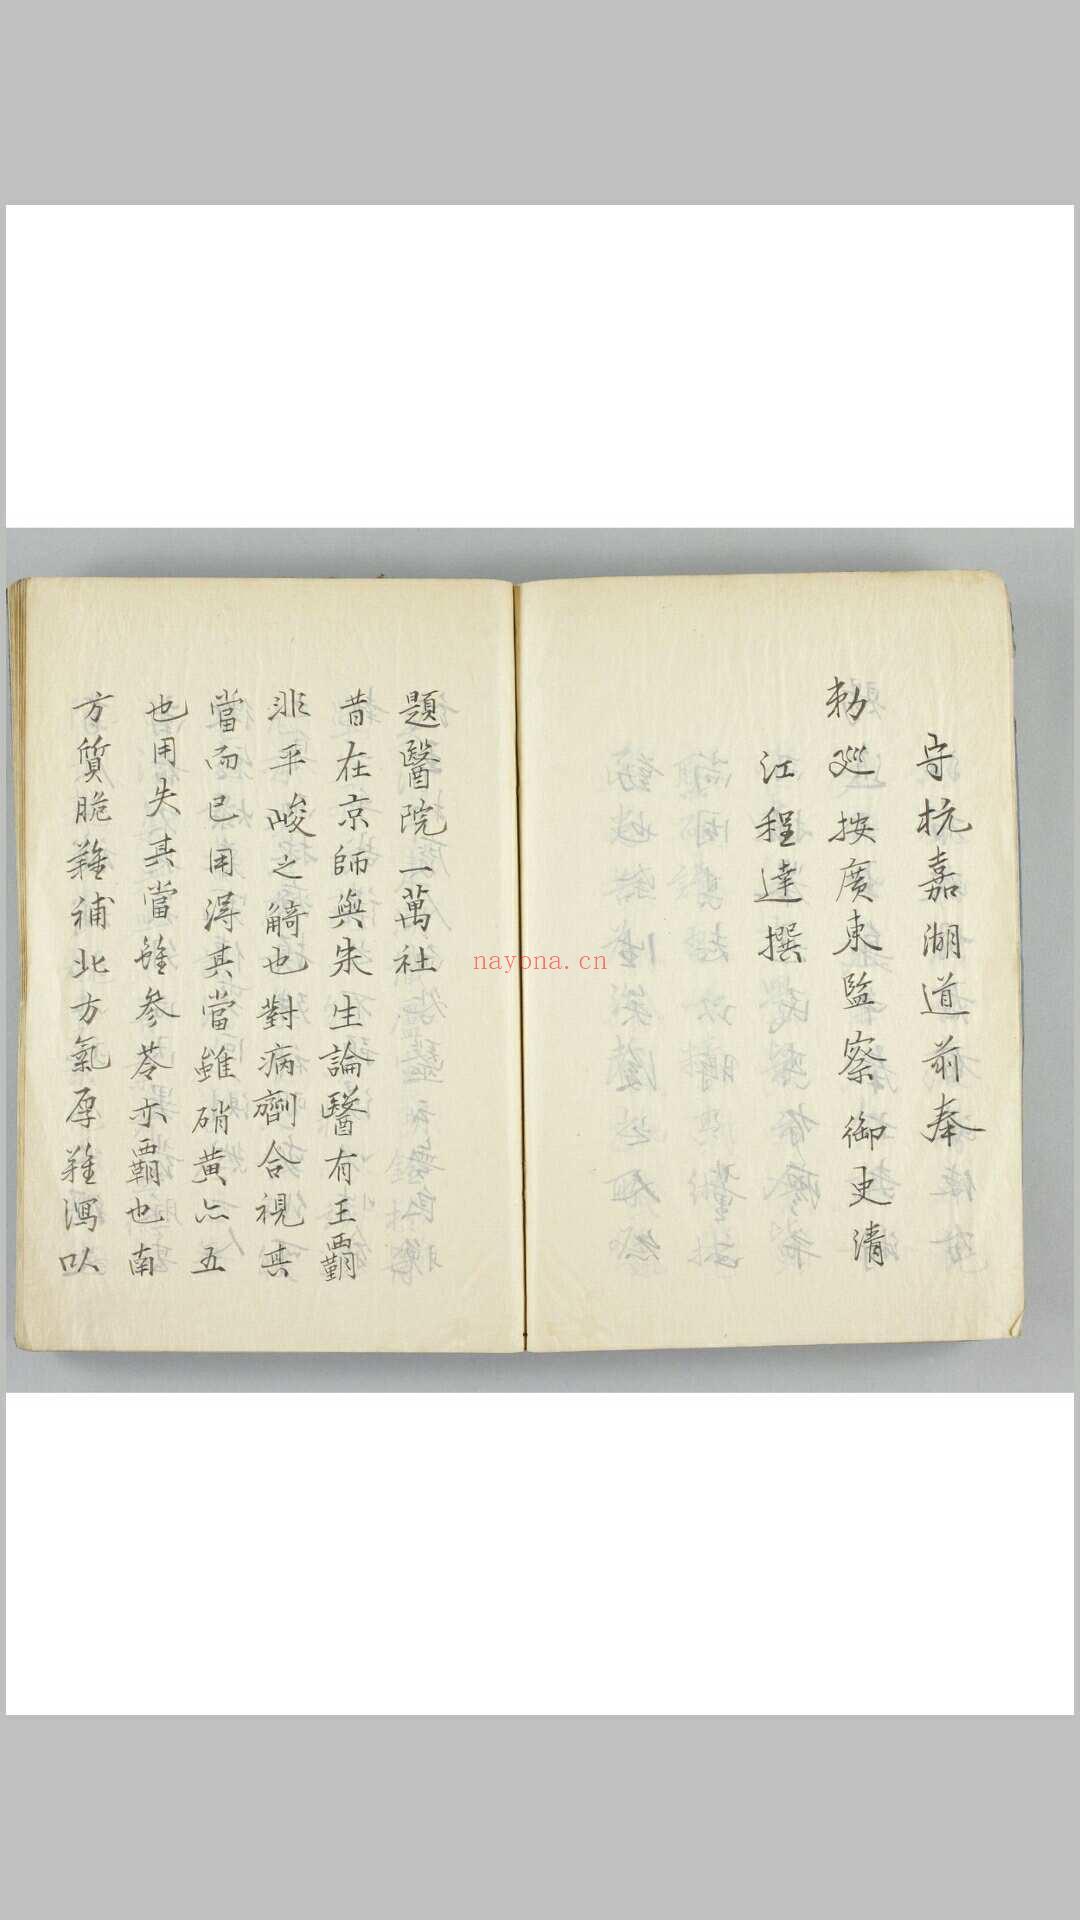 守杭嘉湖道前奉
勅巡按廣東監察御史清
江程達撰
題醫院一萬社
昔在京師與朱生論醫有王覇
非平峻之觭也對病劑合視其
當而已用得其當雖硝黃亦五
也用失其當雖參苓亦覇也南
方質脆難補北方氣厚難瀉以
nayona.cn